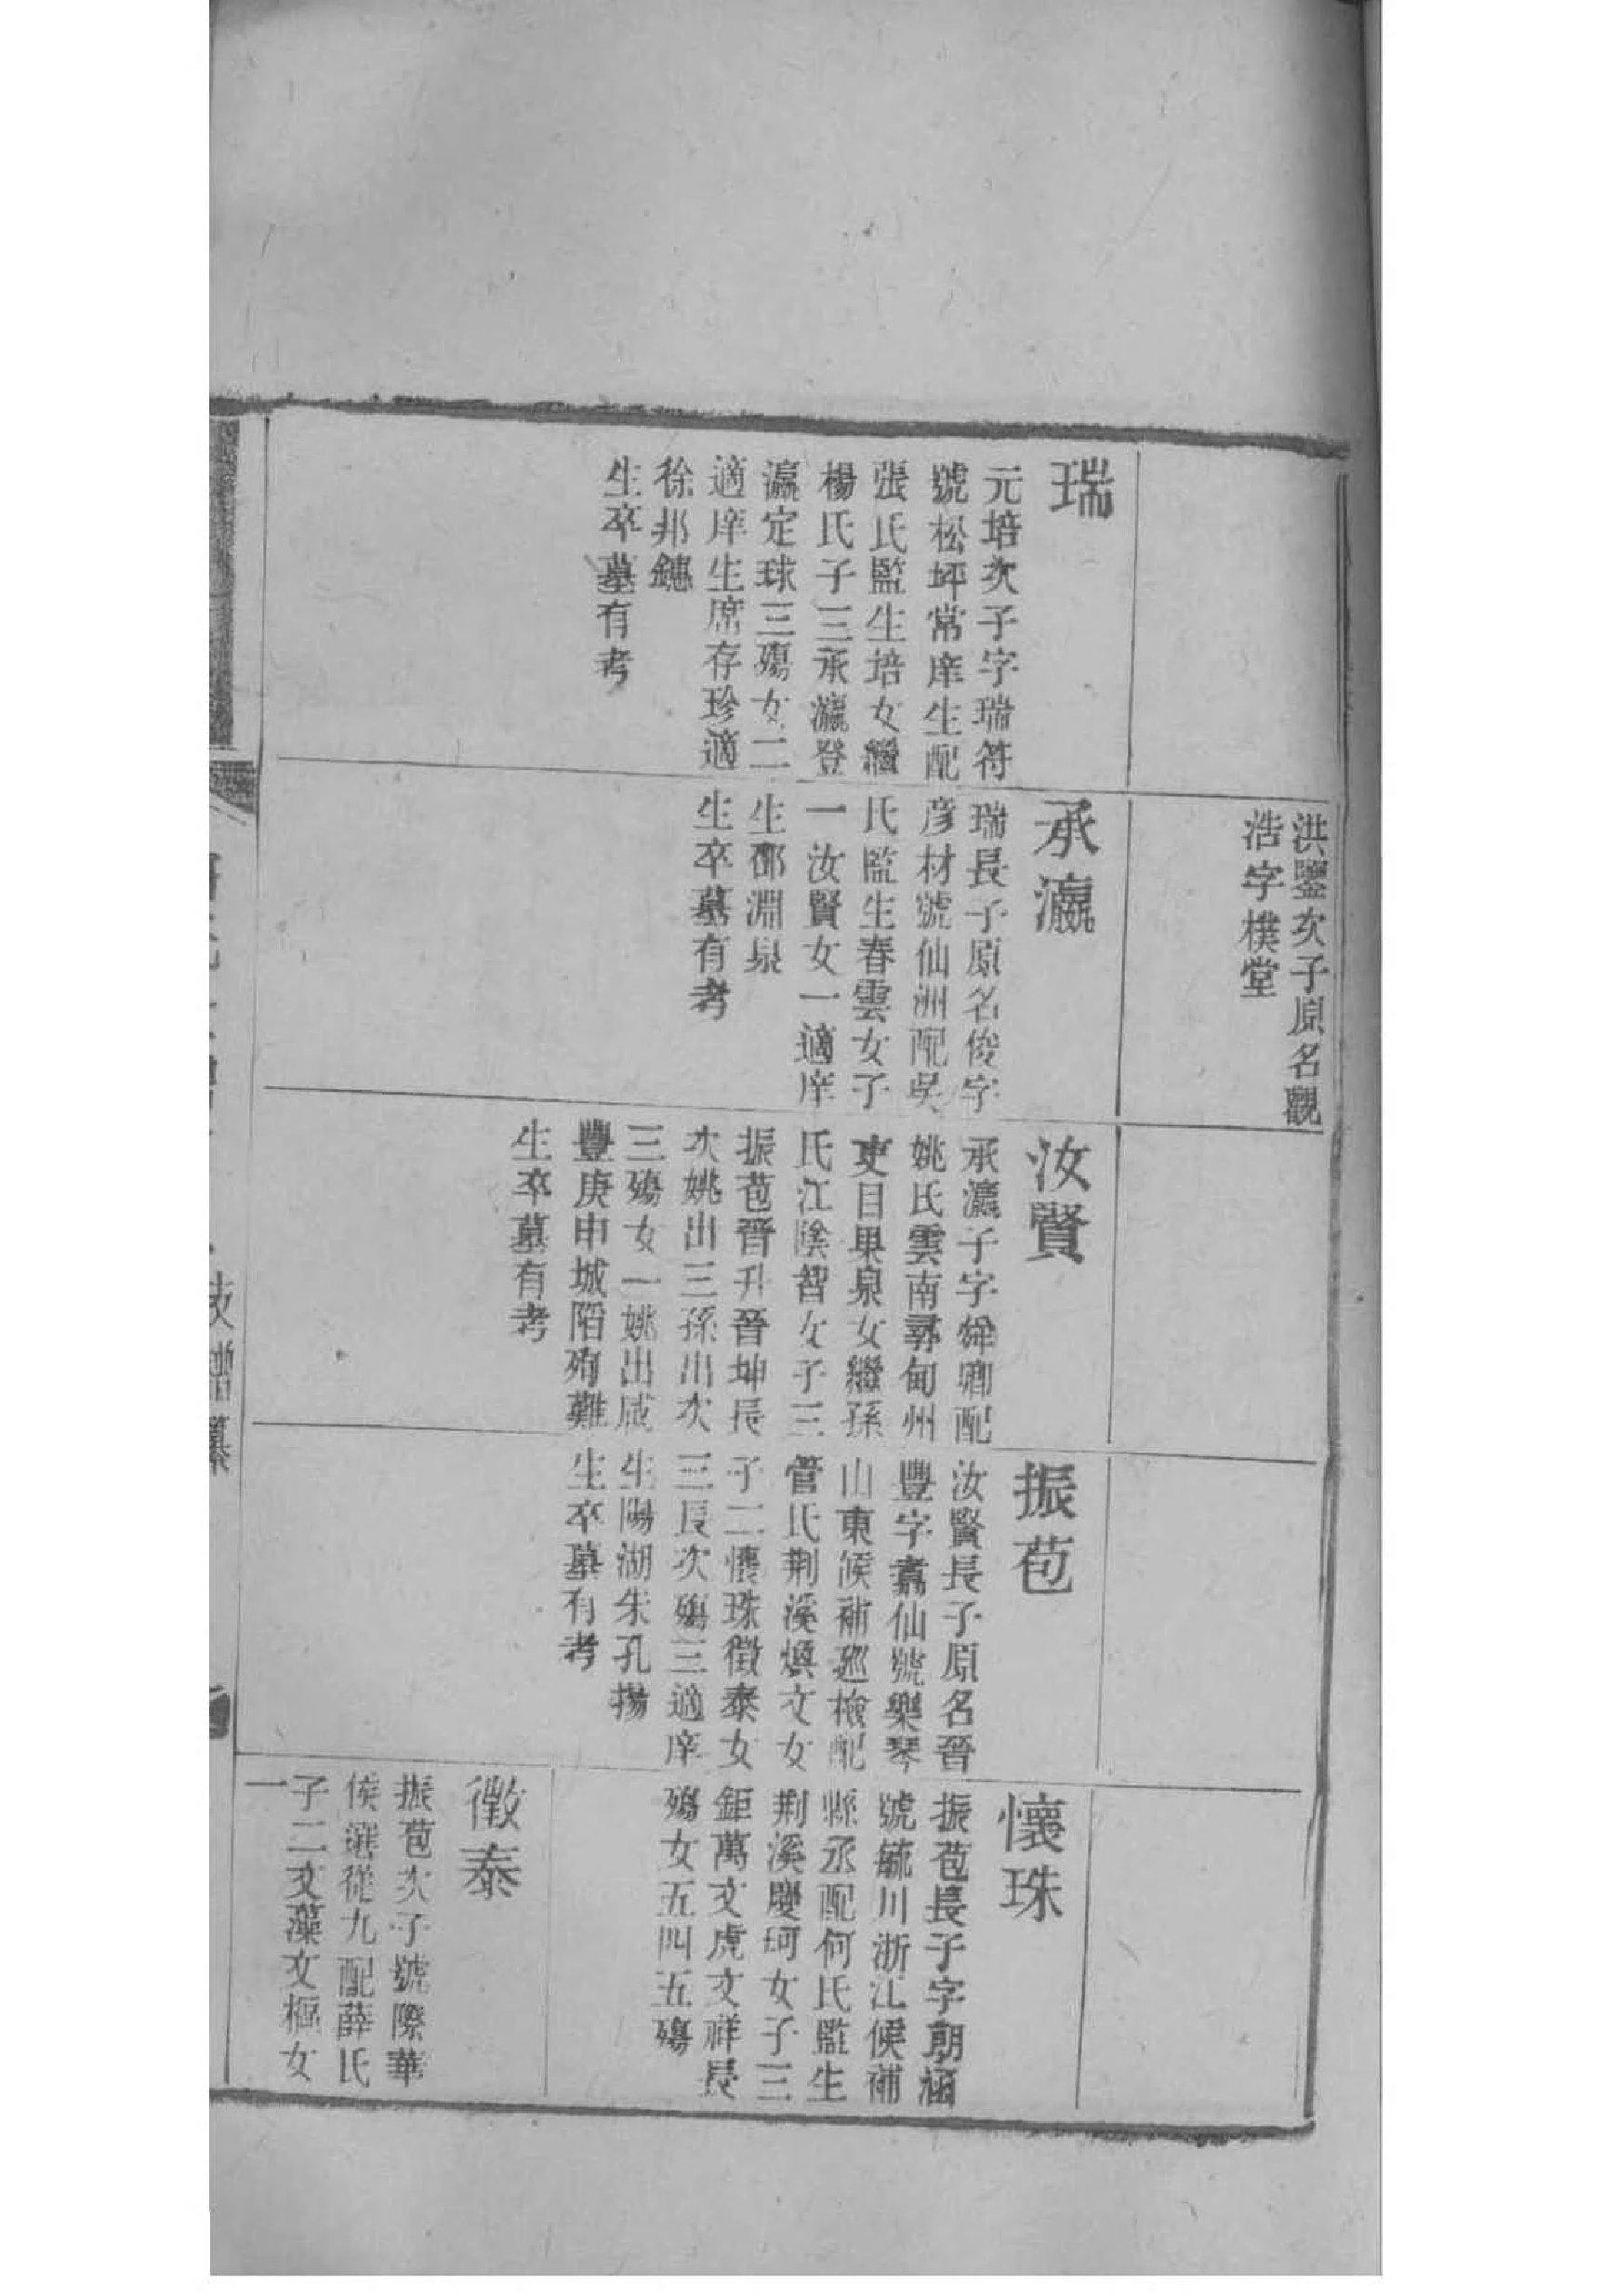 瑞
元培次子字瑞符
號松坪常庠生配
張氏監生培女繼
楊氏子三承瀛登
瀛定球三殤女二
適庠生席存珍適
徐邦鏸
生卒墓有考
洪鑒次子原名觀
浩字樸堂
承瀛
瑞長子原名俊字
彥材號仙洲配吳
氏監生春雲女子
一汝賢女一適庠
生鄒淵泉
生卒墓有考
汝賢
承瀛子字卿配
姚氏雲南尋甸州
吏目果泉女繼孫
氏江陰智女子三
振苞晉升晉坤長
次姚出三孫出次
三殤女一姚出咸
豐庚申城陷殉難
生卒墓有考
振苞
汝賢長子原名晉
豐字翥仙號樂琴
山東候補巡檢配
管氏荆溪煥文女
子二懷珠徵泰女
三長次殤三適庠
生陽湖朱孔揚
生卒墓有考
懷珠
振苞長子字朝涵
號毓川浙江候補
縣丞配何氏監生
荆溪慶珂女子三
鉅萬文虎文祥長
殤女五四五殤
徵泰
振苞次子號際華
候選從九配薛氏
子二文藻文樞女
一